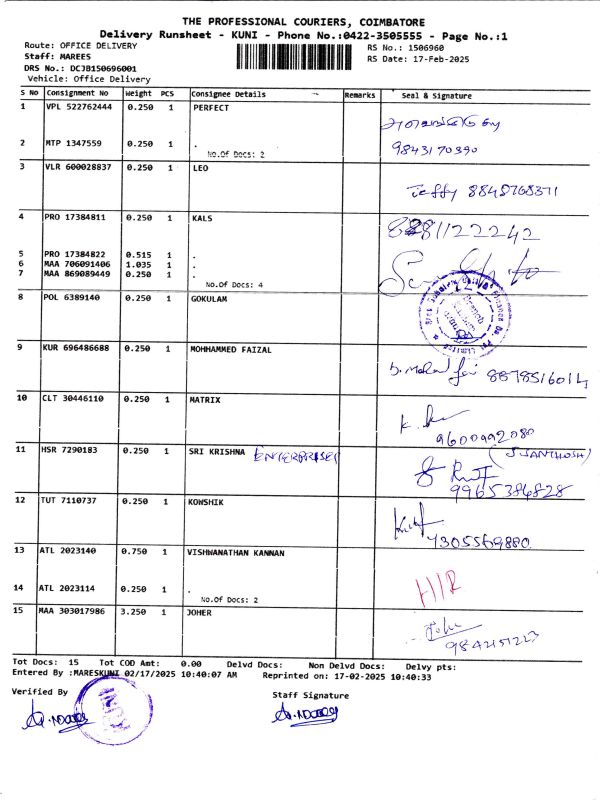 THE PROFESSIONAL COURIERS, COIMBATORE
Delivery Runsheet - KUNI - Phone No.:0422-3505555 - Page No.:1
Route: OFFICE DELIVERY
RS No.: 1506960
Staff: MAREE5
RS Date: 17-Feb-2025
DRS No.: DCJB150696001
Vehicle: Office Delivery
S No Consignment No Weight PCS Consignee Details Remarks Seal & Signature
1 VPL 522762444 0.250 1 PERFECT
2 MTP 1347559 0.250 1 . 9843170390
No.Of Docs: 2
3 VLR 600028837 0.250 1 LEO
Jeffy 8845768371
4 PRO 17384811 0.250 1 KALS
8281122242
5 PRO 17384822 0.515 1 .
6 MAA 706091406 1.035 1 .
7 MAA 869089449 0.250 1 .
No.Of Docs: 4
8 POL 6389140 0.250 1 GOKULAM
9 KUR 696486688 0.250 1 MOHHAMMED FAIZAL
8878516014
10 CLT 30446110 0.250 1 MATRIX
9600992080
11 HSR 7290183 0.250 1 SRI KRISHNA ENTERPRISES
(S SANTHOSH)
9965384828
12 TUT 7110737 0.250 1 KOWSHIK
7305569880
13 ATL 2023140 0.750 1 VISHWANATHAN KANNAN
14 ATL 2023114 0.250 1 .
H/R
No.Of Docs: 2
15 MAA 303017986 3.250 1 JOHER
Tot Docs: 15 Tot COD Amt: 0.00 Delvd Docs: Non Delvd Docs: Delvy pts:
Entered By :MARESKUNI 02/17/2025 10:40:07 AM Reprinted on: 17-02-2025 10:40:33
Verified By
Staff Signature